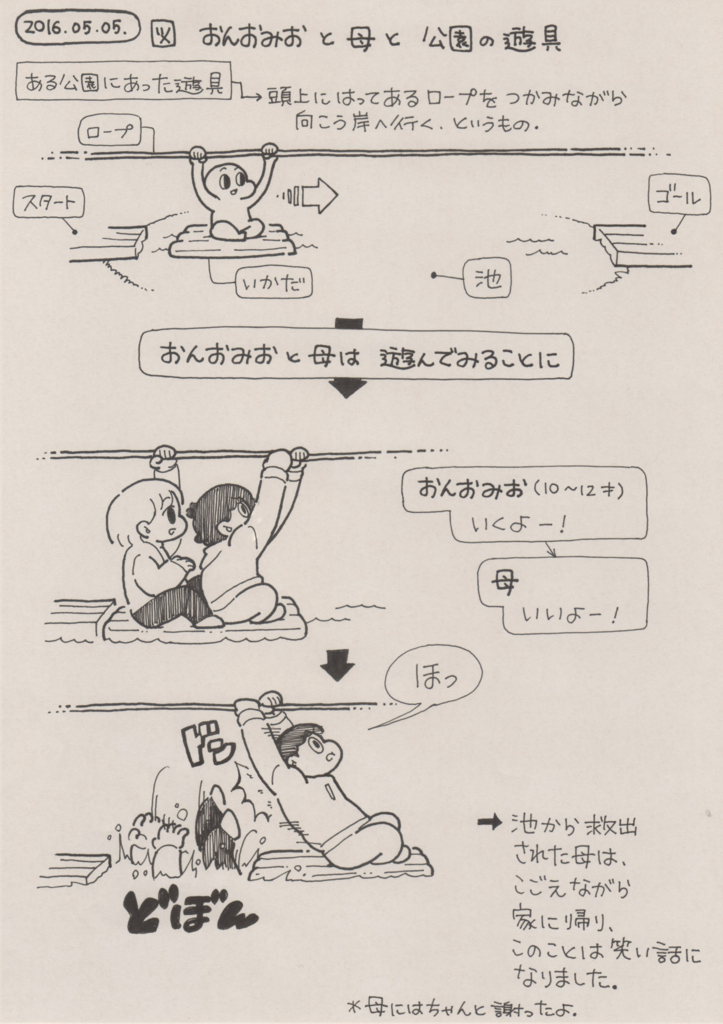 2016.05.05. 火 おんおみおと母と公園の遊具
ある公園にあった遊具
頭上にはってあるロープをつかみながら
向こう岸へ行く、というもの.
ロープ
スタート
ゴール
いかだ
池
おんおみおと母は 遊んでみることに
おんおみお(10～12才)
いくよー!
母
いいよー!
ほっ
ドン
どぼん
→ 池から救出
された母は、
こごえながら
家に帰り、
このことは笑い話に
なりました。
*母にはちゃんと謝ったよ.